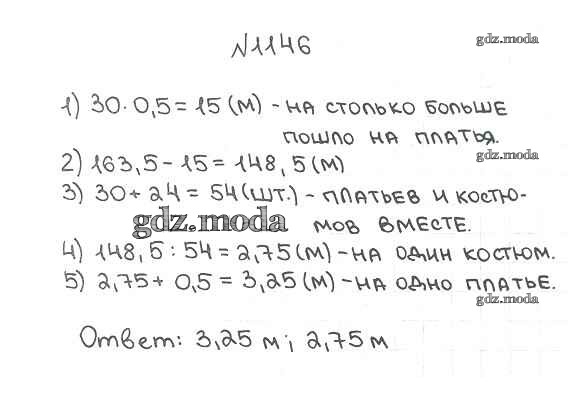 N1146
gdz.moda
1) 30·0,5=15(м) - на столько больше
пошло на платья.
gdz.moda
2) 163,5-15=148,5(м)
3) 30+24=54(шт.) - платьев и костю-
gdz.moda
мов вместе.
4) 148,5:54=2,75(м) - на один костюм.
5) 2,75+0,5=3,25(м) - на одно платье.
gdz.moda
Ответ: 3,25 м; 2,75 м